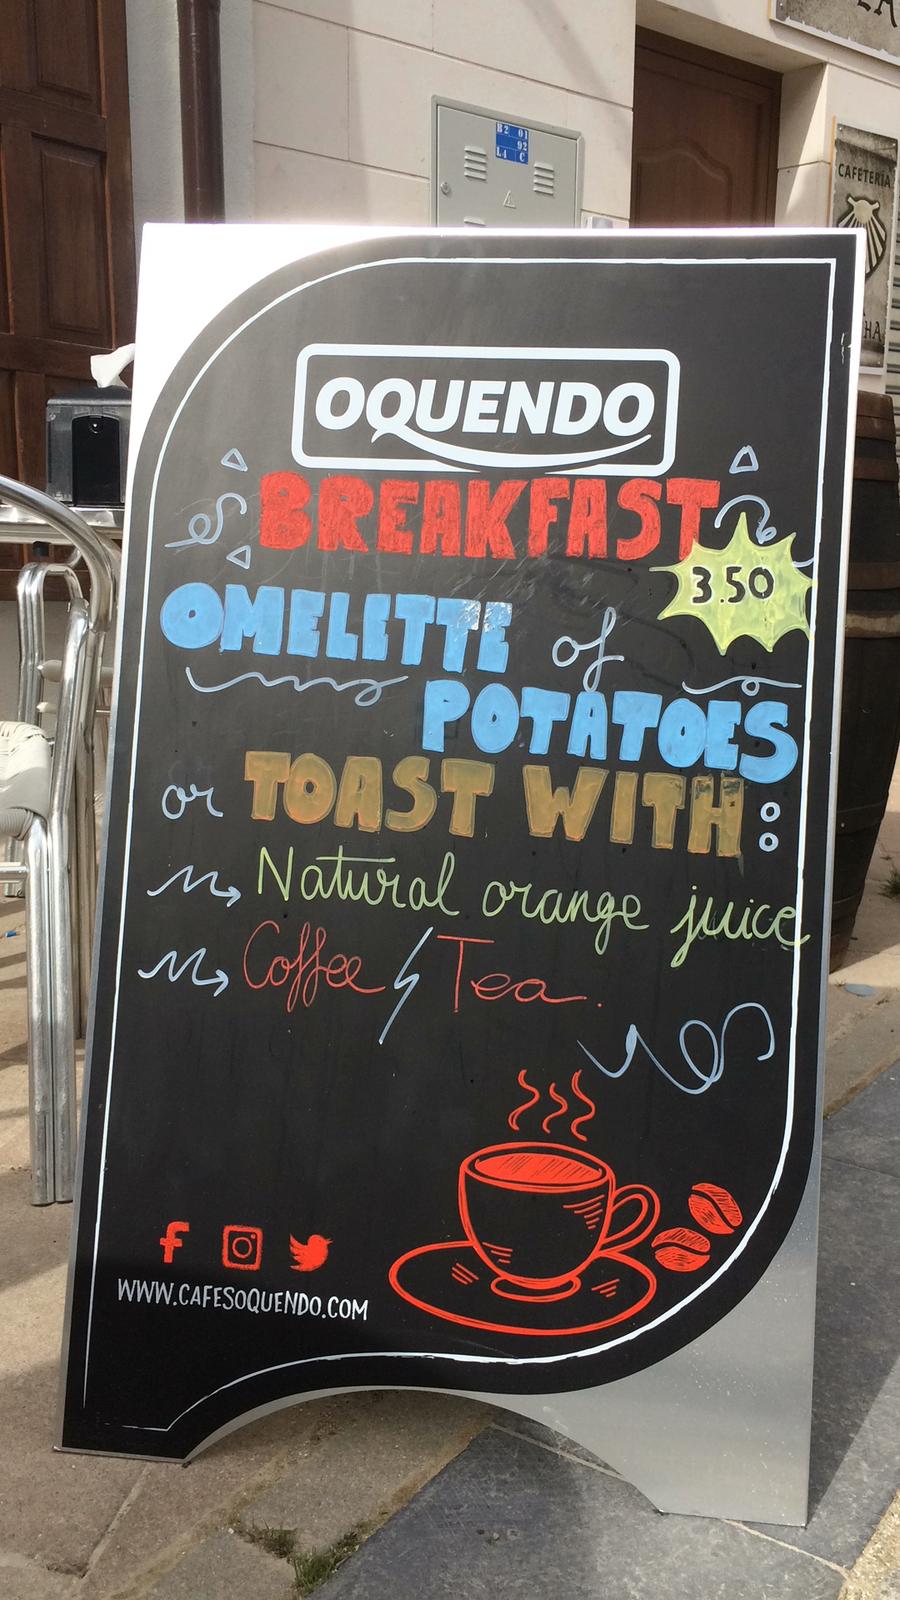 B2 01
92
L4 C
CAFETERIA
OQUENDO
BREAKFAST
3.50
OMELETTE of
POTATOES
or TOAST WITH:
Natural orange juice
Coffee / Tea.
WWW.CAFESOQUENDO.COM